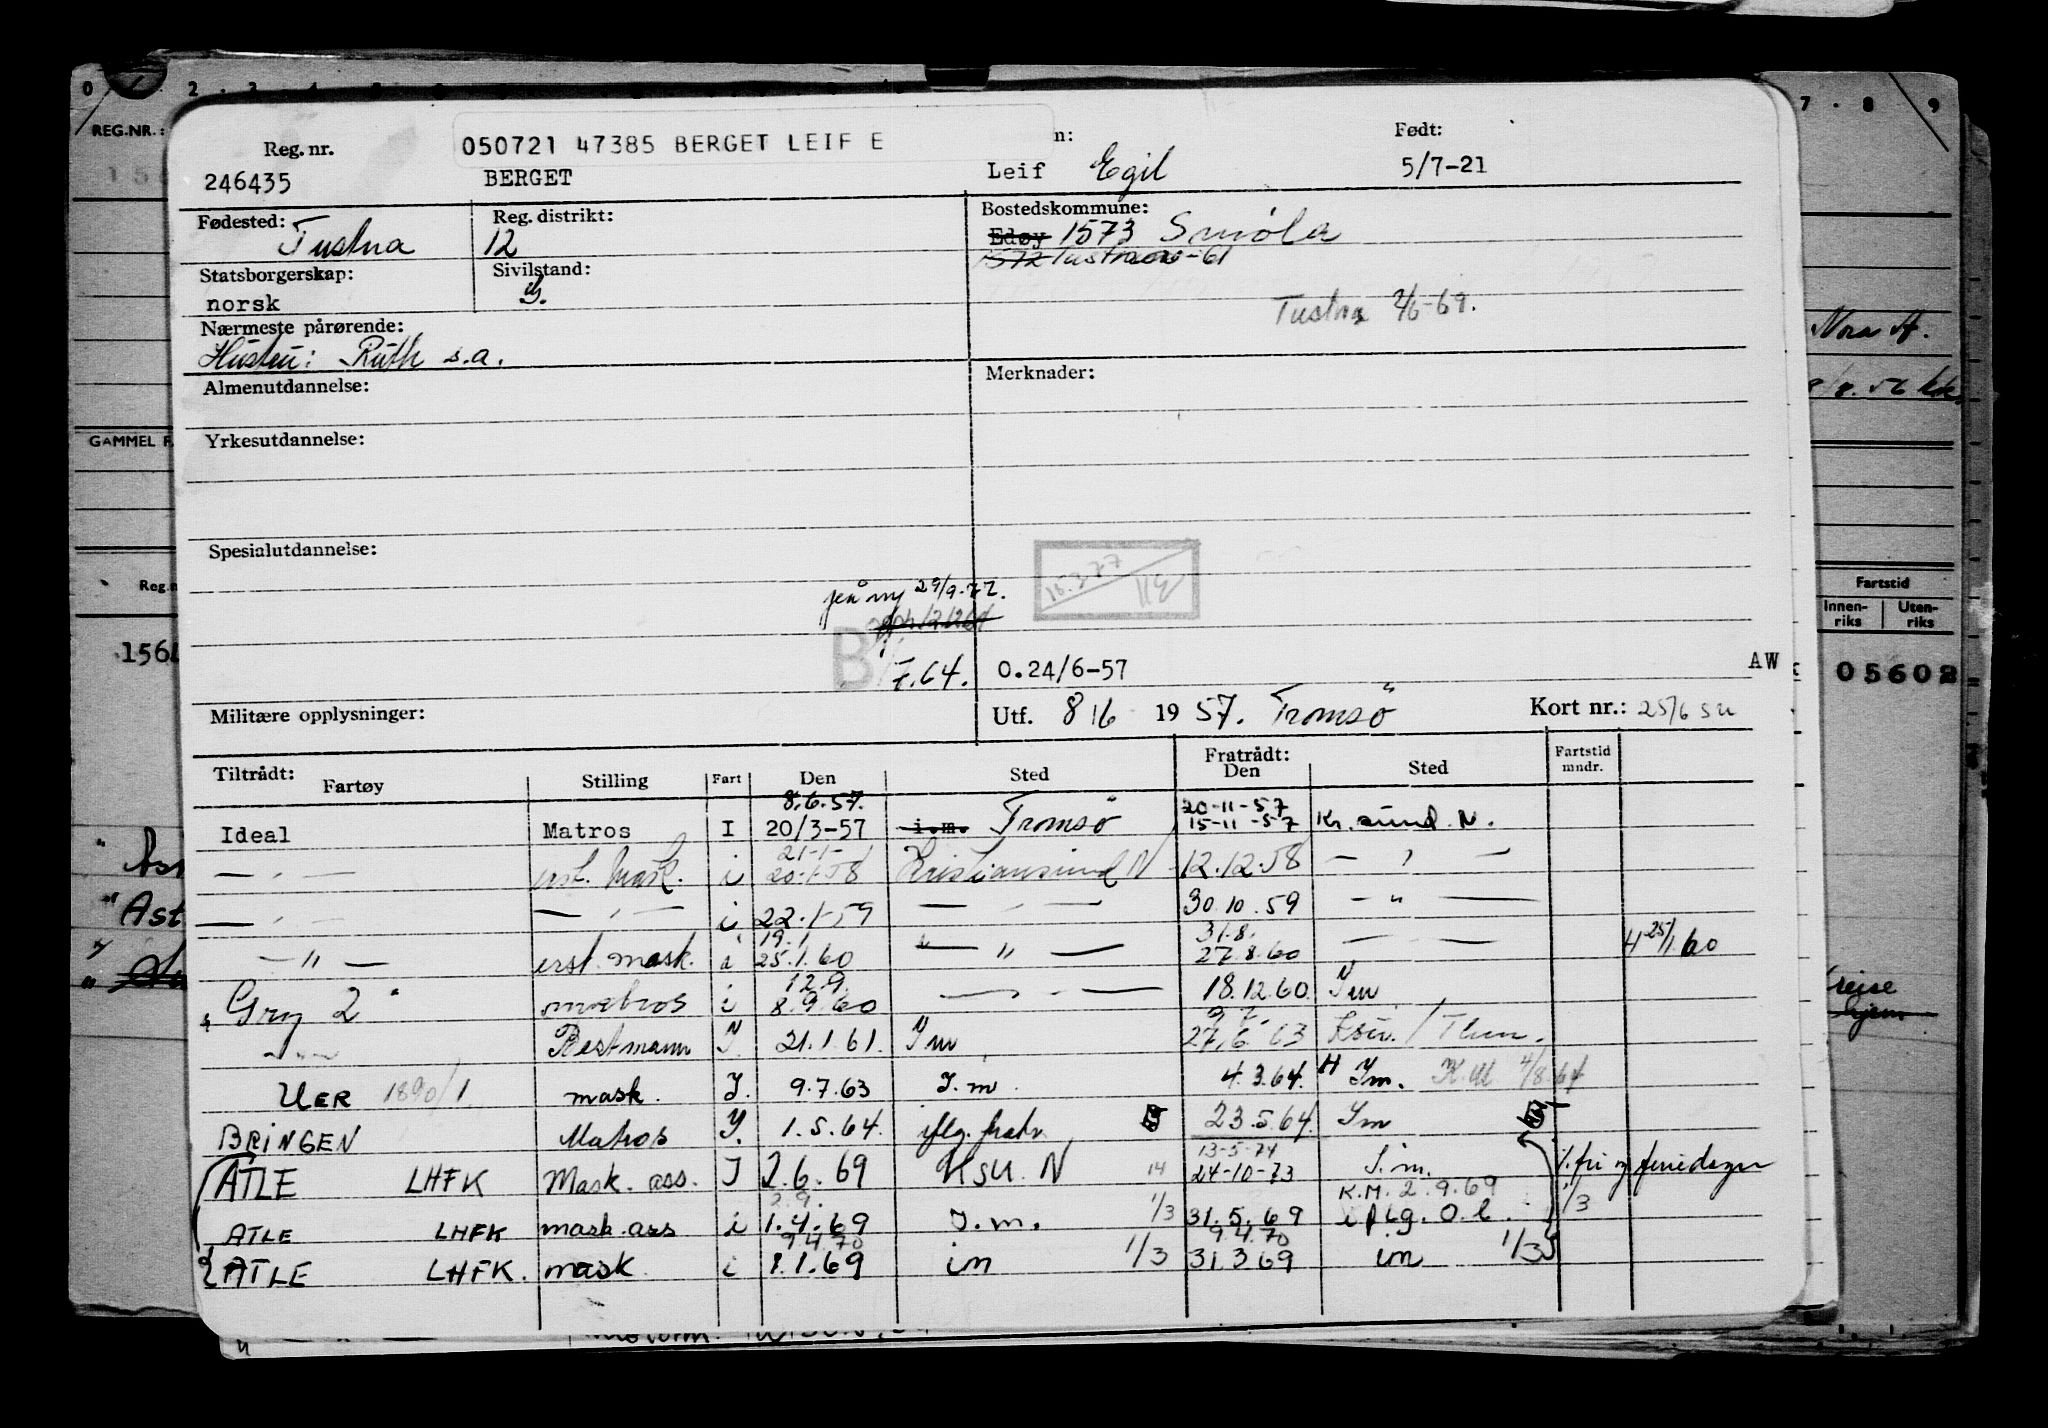 0 2 · 3 7 · 8 9
REG.NR.:
050721 47385 BERGET LEIF E
n: Født:
Reg. nr.
246435 BERGET Leif Egil 5/7-21
Fødested: Tustna Reg. distrikt: 12 Bostedskommune: Edøy 1573 Smøla
1572 Tustna -61
Statsborgerskap: norsk Sivilstand: g.
Tustna 2/6-69.
Nærmeste pårørende:
Hustru: Ruth s.a.
Nora A.
Almenutdannelse: Merknader:
Yrkesutdannelse:
GAMMEL F
Spesialutdannelse:
15.3.77
Reg.n Fartstid
Innenriks Utenriks
29/9-77.
B 7.64. 0.24/6-57 AW
05602
Militære opplysninger: Utf. 8/6 1957. Tromsö Kort nr.: 25/6 su
Tiltrådt: Fartøy Stilling Fart Den Sted Fratrådt: Den Sted Fartstid mndr.
8.6.57. 20-11-57
Ideal Matros I 20/3-57 i.m. Tromsö 15-11-57 Kr.sund. N.
21-1-
— " — erst. mask. i 20-1-58 Kristiansund N 12.12.58 — " —
— " — — " — i 22.1-59 — " — 30.10.59 — " —
19.1 31.8.
— " — erst. mask. i 25.1.60 — " — 27.8.60 — " — 25/1.60
12.9.
" Gry 2 " matros i 8.9.60 — " — 18.12.60. Im
— " — Bestmann I. 21.1.61. Im 27.6.63 Ksu. / Tlun.
UER 1890/1 mask. I. 9.7.63 I.m. 4.3.64. H Im. K.M 4/8 64
BRINGEN Matros I. 1.5.64. iflg. fratr. 23.5.64. Im
13-5-74
ATLE LHFK Mask. ass. I 2.6.69 KSU. N 14 24-10-73 I.m. 1. fri og feriedager
2.9. K.M. 2.9.69
ATLE LHFK mask ass i 1.4.69 I.m. 1/3 31.5.69 iflg. O.l. 1/3
9.4.70 9.4.70
ATLE LHFK. mask i 1.1.69 im 1/3 31.3.69 im 1/3